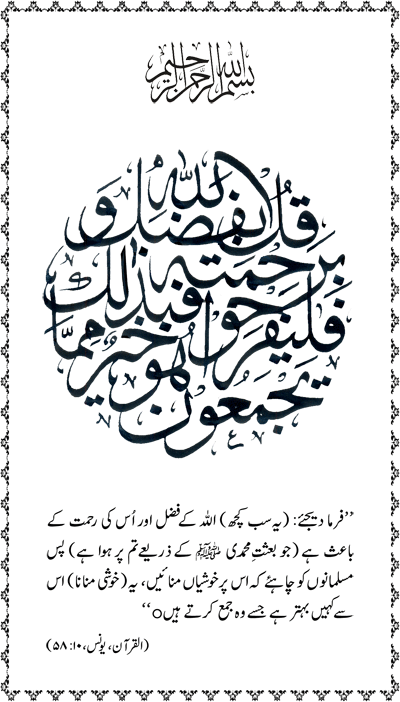 بسم الله الرحمن الرحيم
قل بفضل الله و
برحمته فبذلك
فليفرحوا
هو خير مما
يجمعون
’’فرما دیجئے: (یہ سب کچھ) اللہ کے فضل اور اُس کی رحمت کے
باعث ہے (جو بعثتِ محمدی ﷺ کے ذریعے تم پر ہوا ہے) پس
مسلمانوں کو چاہئے کہ اس پر خوشیاں منائیں، یہ (خوشی منانا) اس
سے کہیں بہتر ہے جسے وہ جمع کرتے ہیںo‘‘
(القرآن، یونس، ۱۰: ۵۸)